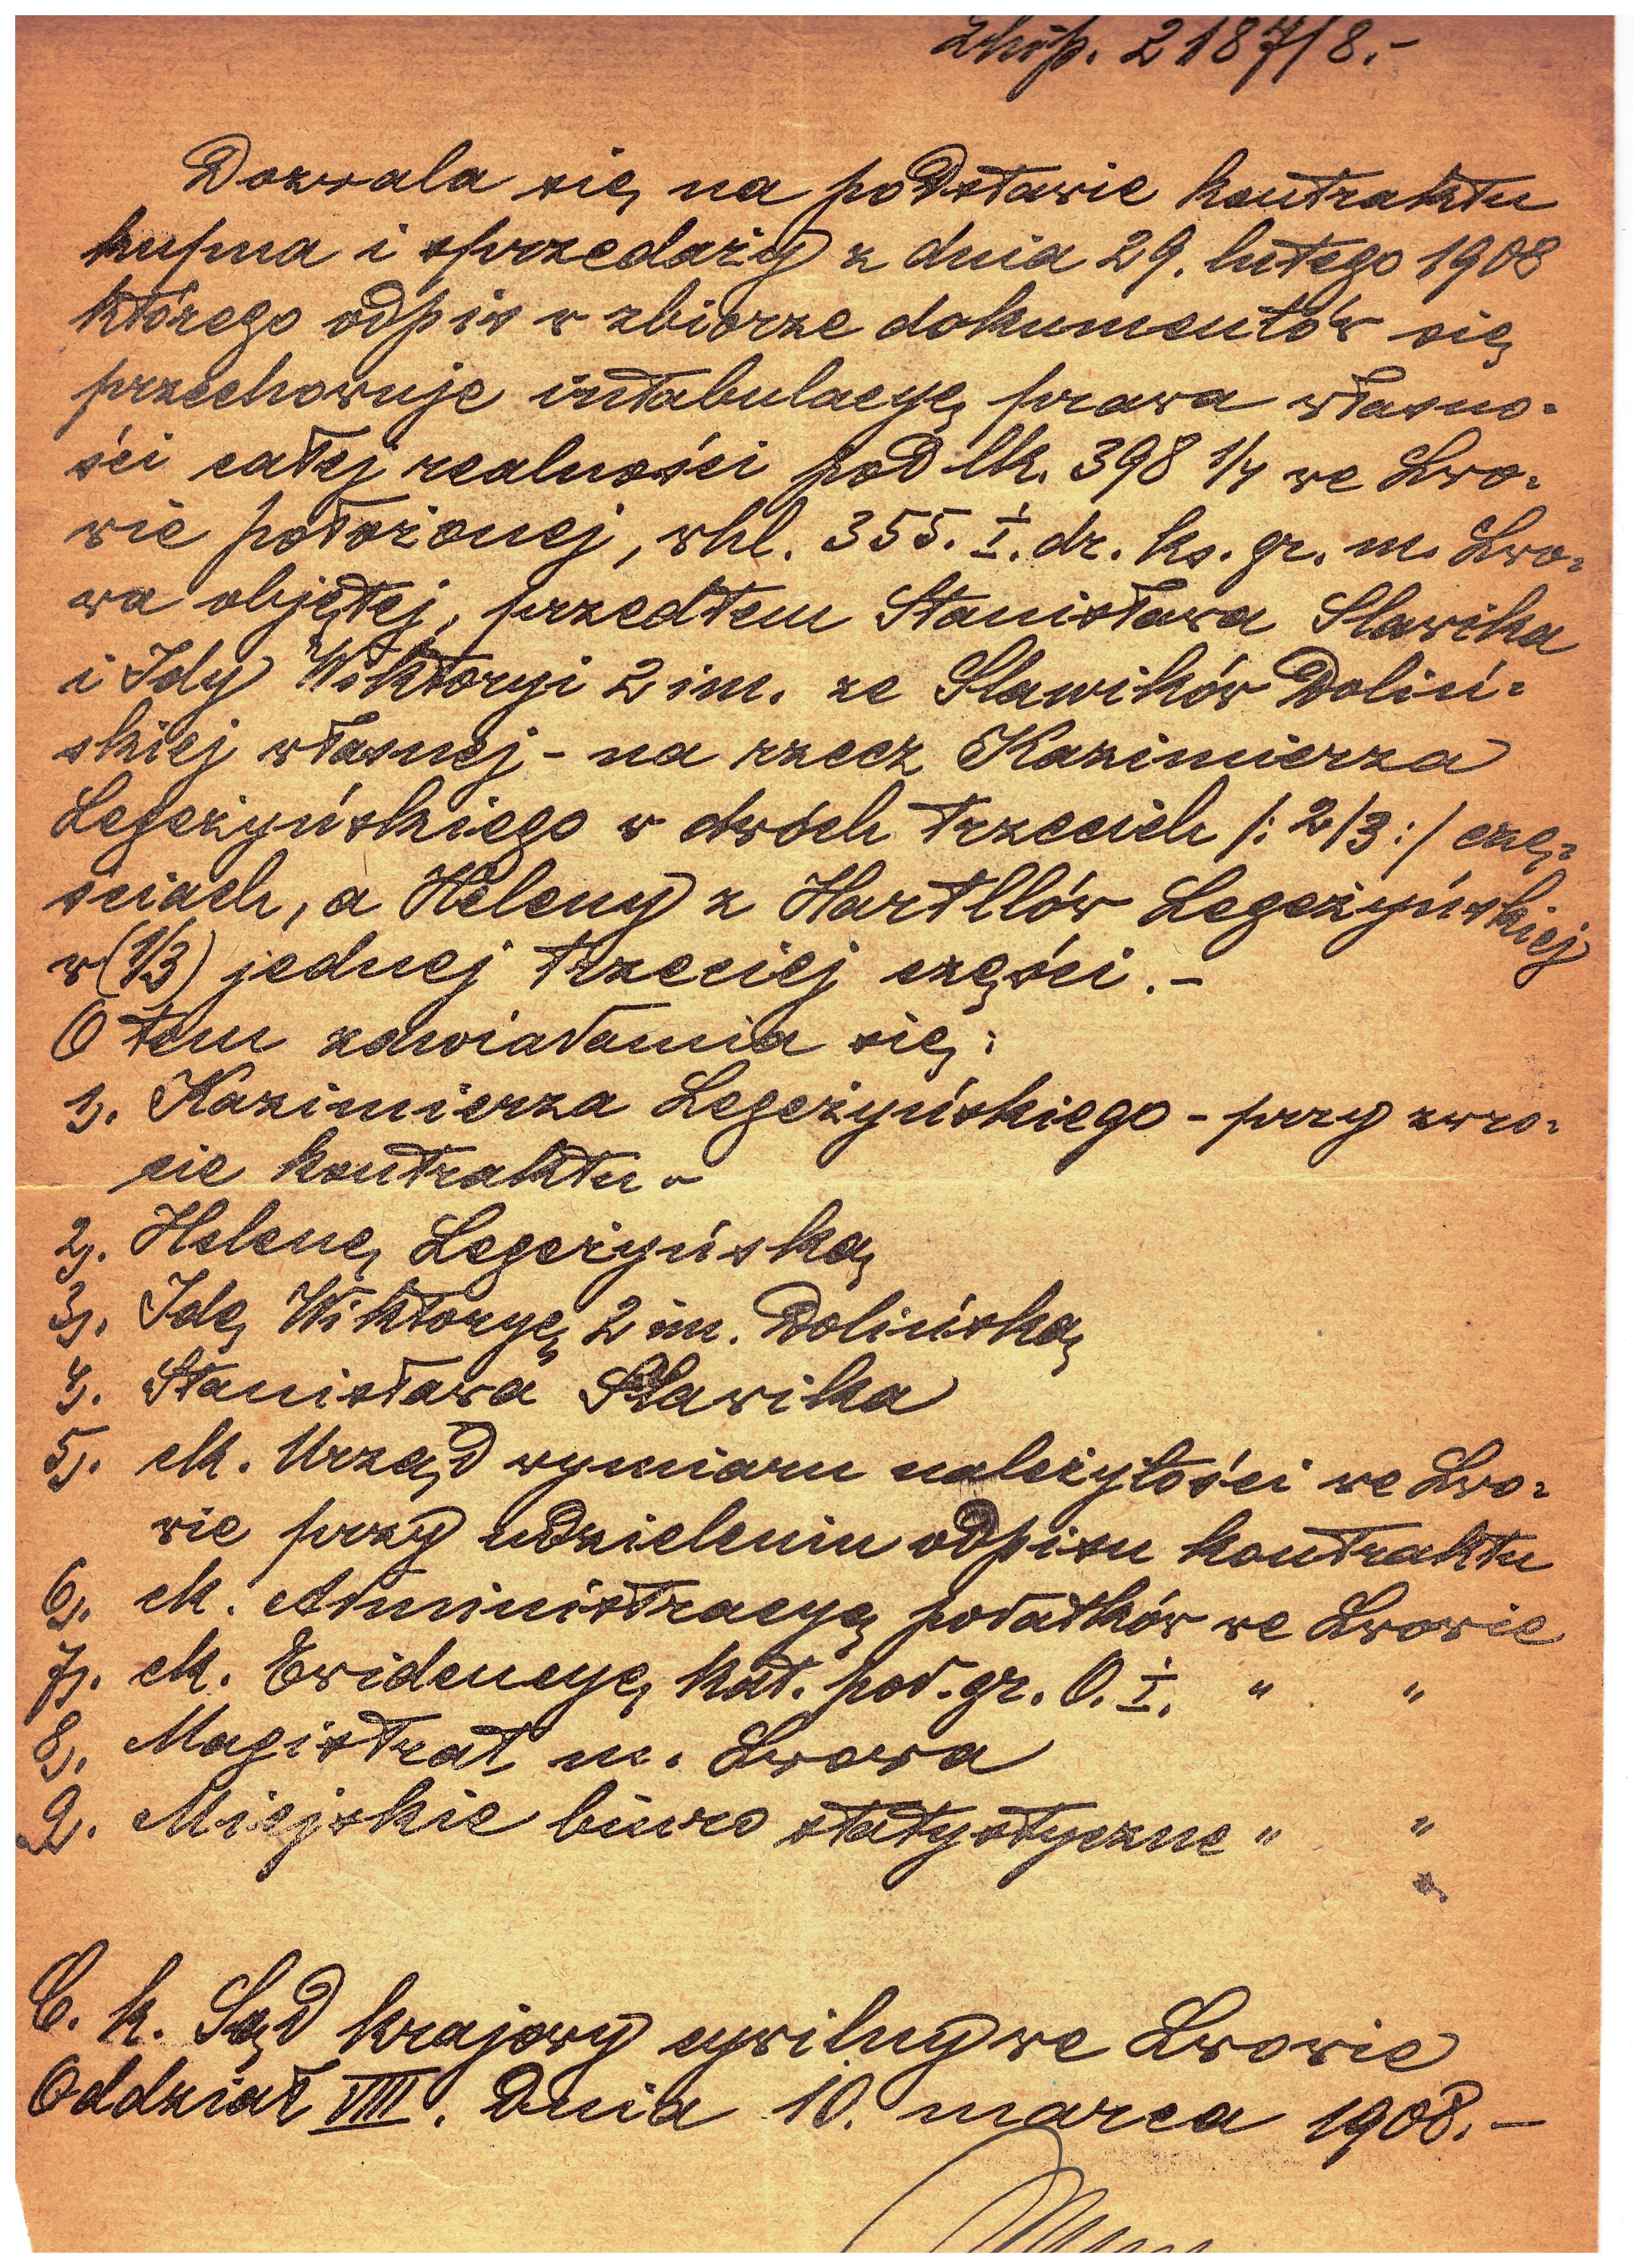 Lhip. 2187/8.-
Dozwala się na podstawie kontraktu
kupna i sprzedaży z dnia 29. lutego 1908
którego odpis w zbiorze dokumentów się
przechowuje intabulacyę prawa własno=
ści całej realności pod lk. 398 1/4 we Lwo=
wie położonej, whl. 355. I. dz. ks. gr. m. Lwo=
wa objętej, przedtem Stanisława Slawika
i Idy Wiktoryi 2 im. ze Slawików Doliń=
skiej własnej - na rzecz Kazimierza
Legeżyńskiego w dwóch trzecich /: 2/3 :/ czę=
ściach, a Heleny z Hartllów Legeżyńskiej
w (1/3) jednej trzeciej części.-
O tem zawiadamia się:
1). Kazimierza Legeżyńskiego - przy zwro=
cie kontraktu -
2). Helenę Legeżyńską
3). Idę Wiktoryę 2 im. Dolińską
4). Stanisława Slawika
5). ck. Urząd wymiaru należytości we Lwo=
wie przy udzieleniu odpisu kontraktu
6). ck. Administracyę podatków we Lwowie
7). ck. Ewidencyę kat. pod. gr. O. I. " "
8). Magistrat m. Lwowa
9. Miejskie biuro statystyczne " "
C. k. Sąd krajowy cywilny we Lwowie
Oddział VIII. Dnia 10. marca 1908.-